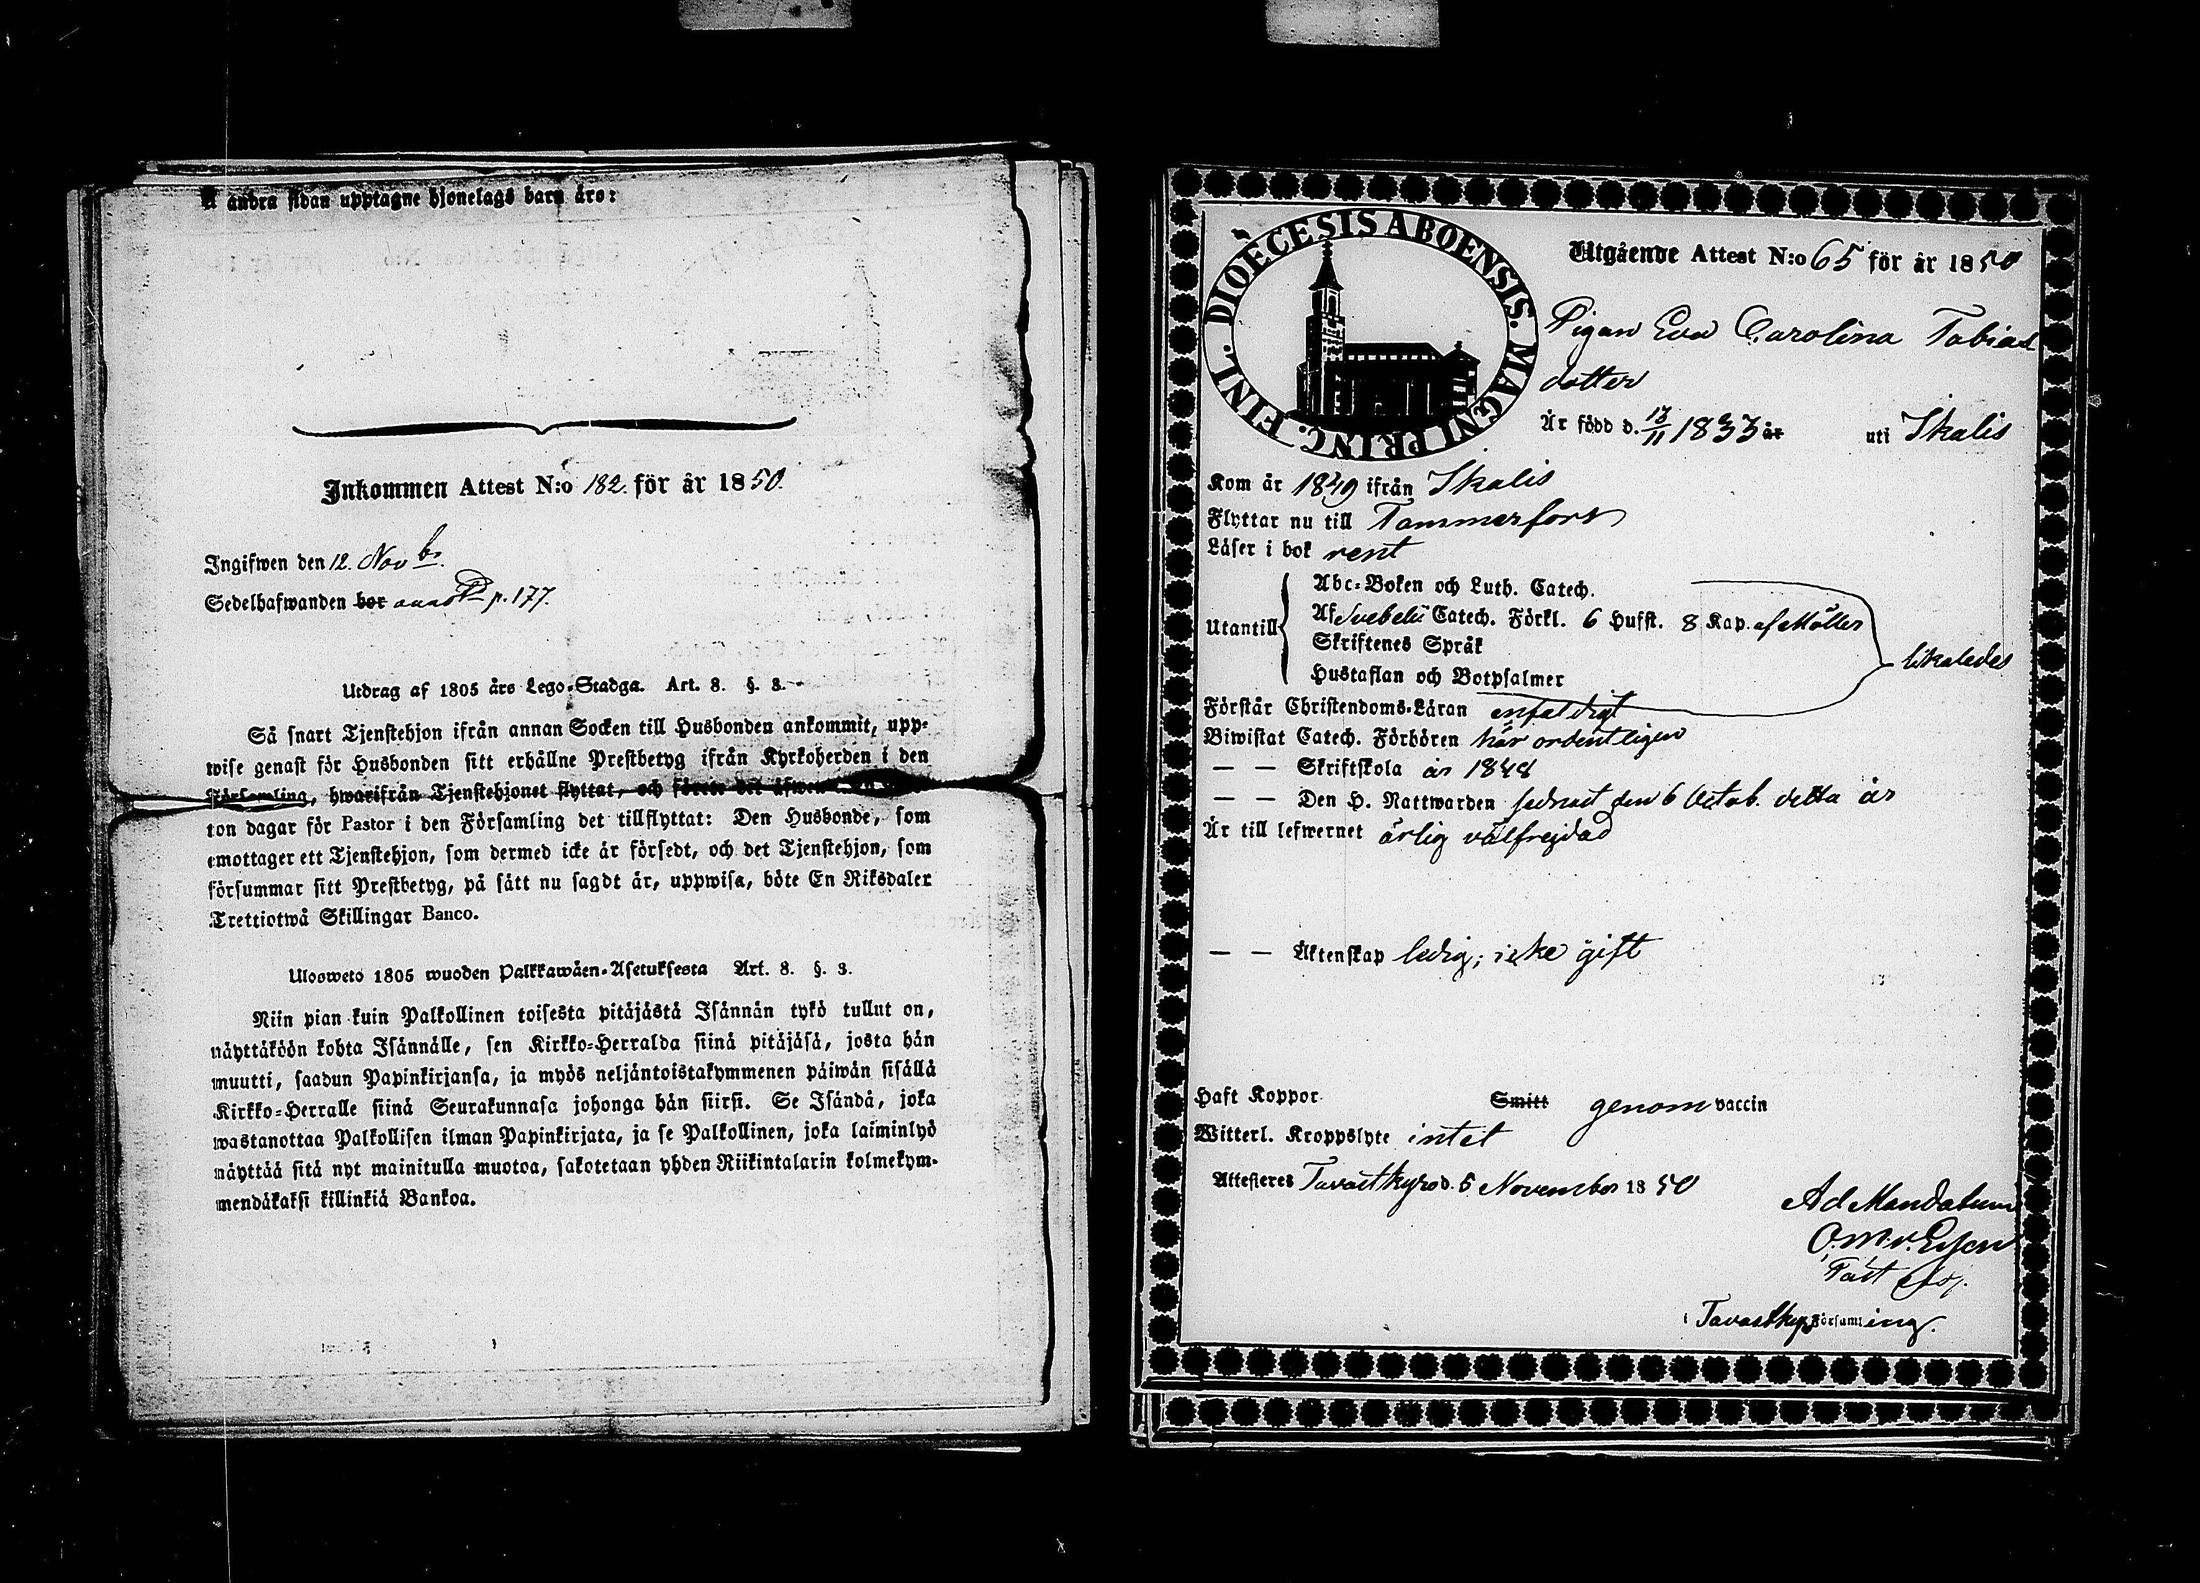 å andra sidan upptagne hjonelags barn äro:
Inkommen Attest N:o 182. för år 1850.
Ingifwen den 12. Novbr.
Sedelhafwanden bor p. 177.
Utdrag af 1805 års Lego-Stadga. Art. 8. §. 3.
Så snart Tjenstehjon ifrån annan Socken till Husbonden ankommit, upp-
wise genast för Husbonden sitt erhållne Prestbetyg ifrån Kyrkoherden i den
Församling, hwarifrån Tjenstehjonet flyttat, och förete det äfwen
ton dagar för Pastor i den Församling det tillflyttat: Den Husbonde, som
emottager ett Tjenstehjon, som dermed icke är försedt, och det Tjenstehjon, som
försummar sitt Prestbetyg, på sätt nu sagdt är, uppwisa, böte En Riksdaler
Trettiotwå Skillingar Banco.
Ulosweto 1805 wuoden Palkkawäen-Asetuksesta Art. 8. §. 3.
Niin pian kuin Palkollinen toisesta pitäjästä Isännän tykö tullut on,
näyttäköön kohta Isännälle, sen Kirkko-Herralda siinä pitäjäsä, josta hän
muutti, saadun Papinkirjansa, ja myös neljäntoistakymmenen päiwän sisällä
Kirkko-Herralle siinä Seurakunnasa johonga hän siirsi. Se Isändä, joka
wastanottaa Palkollisen ilman Papinkirjata, ja se Palkollinen, joka laiminlyö
näyttää sitä nyt mainitulla muotoa, sakotetaan yhden Riikintalarin kolmekym-
mendäkaksi killinkiä Bankoa.
DIOECESIS ABOENSIS. MAGNI PRINC. FINL.
Utgående Attest N:o 65 för år 1850
Pigan Eva Carolina Tobias
dotter
Är född d. 13/11 1833 år uti Ikalis
Kom år 1849 ifrån Ikalis
Flyttar nu till Tammerfors
Läser i bok rent
Utantill
Abc-Boken och Luth. Catech.
Af Svebelii Catech. Förkl. 6 Hufst. 8 Kap. af Möller
Skriftenes Språk
Hustaflan och Botpsalmer
likaledes
Förstår Christendoms-Läran enfaldigt
Biwistat Catech. Förhören här ordentligen
— — Skriftskola år 1848
— — Den H. Nattwarden sednast den 6 Octob. detta år
Är till lefwernet ärlig välfrejdad
— — Äktenskap ledig; icke gift
Haft Koppor Smitt genom vaccin
Witterl. Kroppslyte intet
Attesteres Tavastkyro d. 5 November 1850
Ad Mandatum
O.M.v.Essen
Past.
i Tavastkyro Församling.